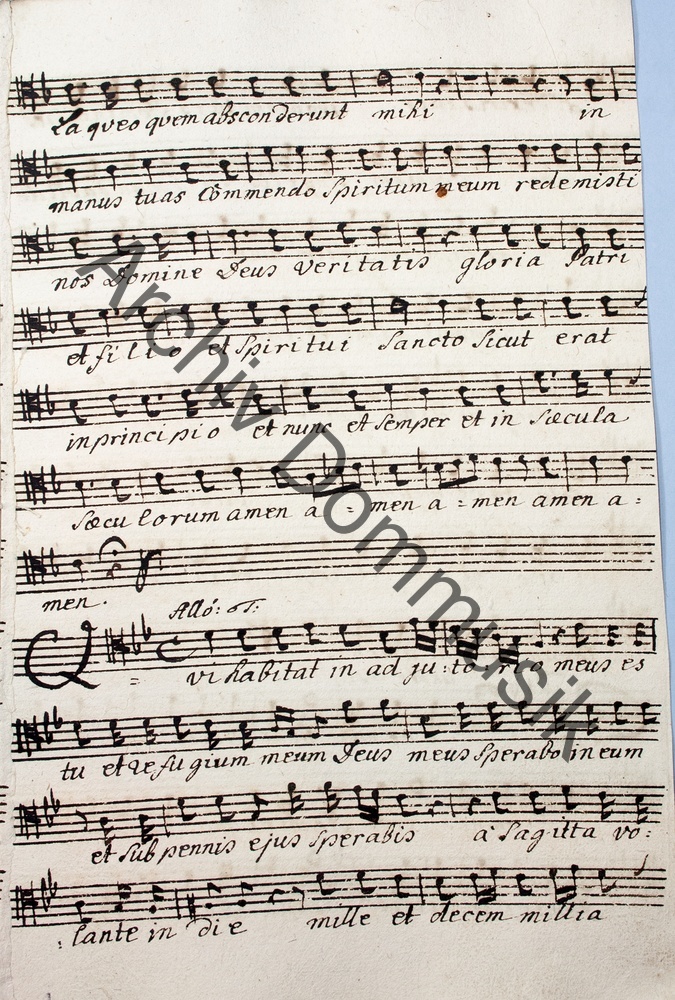 La queo quem absconderunt mihi in
manus tuas Commendo Spiritum meum redemisti
nos Domine Deus Veritatis gloria Patri
et filio et Spiritui Sancto Sicut erat
in principio et nunc et Semper et in Sæcula
Sæculorum amen a - men a - men amen a -
men.
Allo: 6T:
Qvi habitat in ad ju: to: rio meus es
tu et refugium meum Deus meus Sperabo in eum
et Sub pennis ejus Sperabis à Sagitta vo:
:lante in die mille et decem millia
Archiv Dommusik